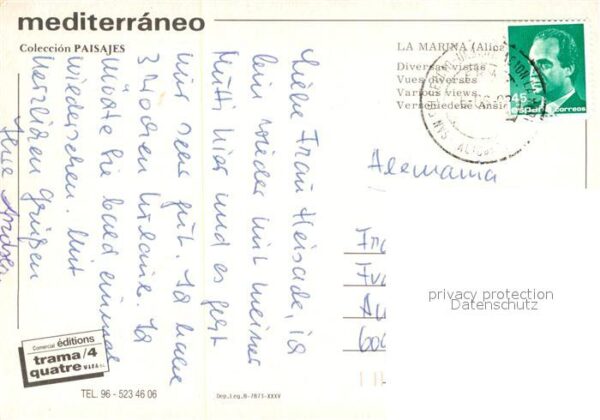 mediterráneo
Colección PAISAJES
LA MARINA (Alic
Diversas vistas
Vues diverses
Various views
Verschiedene Ansic
45
españa correos
Liebe Frau
bin wieder mit meiner
Mutti hier und es geht
mir sehr gut. Ich habe
3 Wochen Urlaub. Ich
möchte Sie bald einmal
wiedersehen. Mit
herzlichen Grüßen
Ihre
Alemania
privacy protection
Datenschutz
Comercial éditions
trama/4
quatre
TEL. 96 - 523 46 06
Dep. Leg. B-7873-XXXV